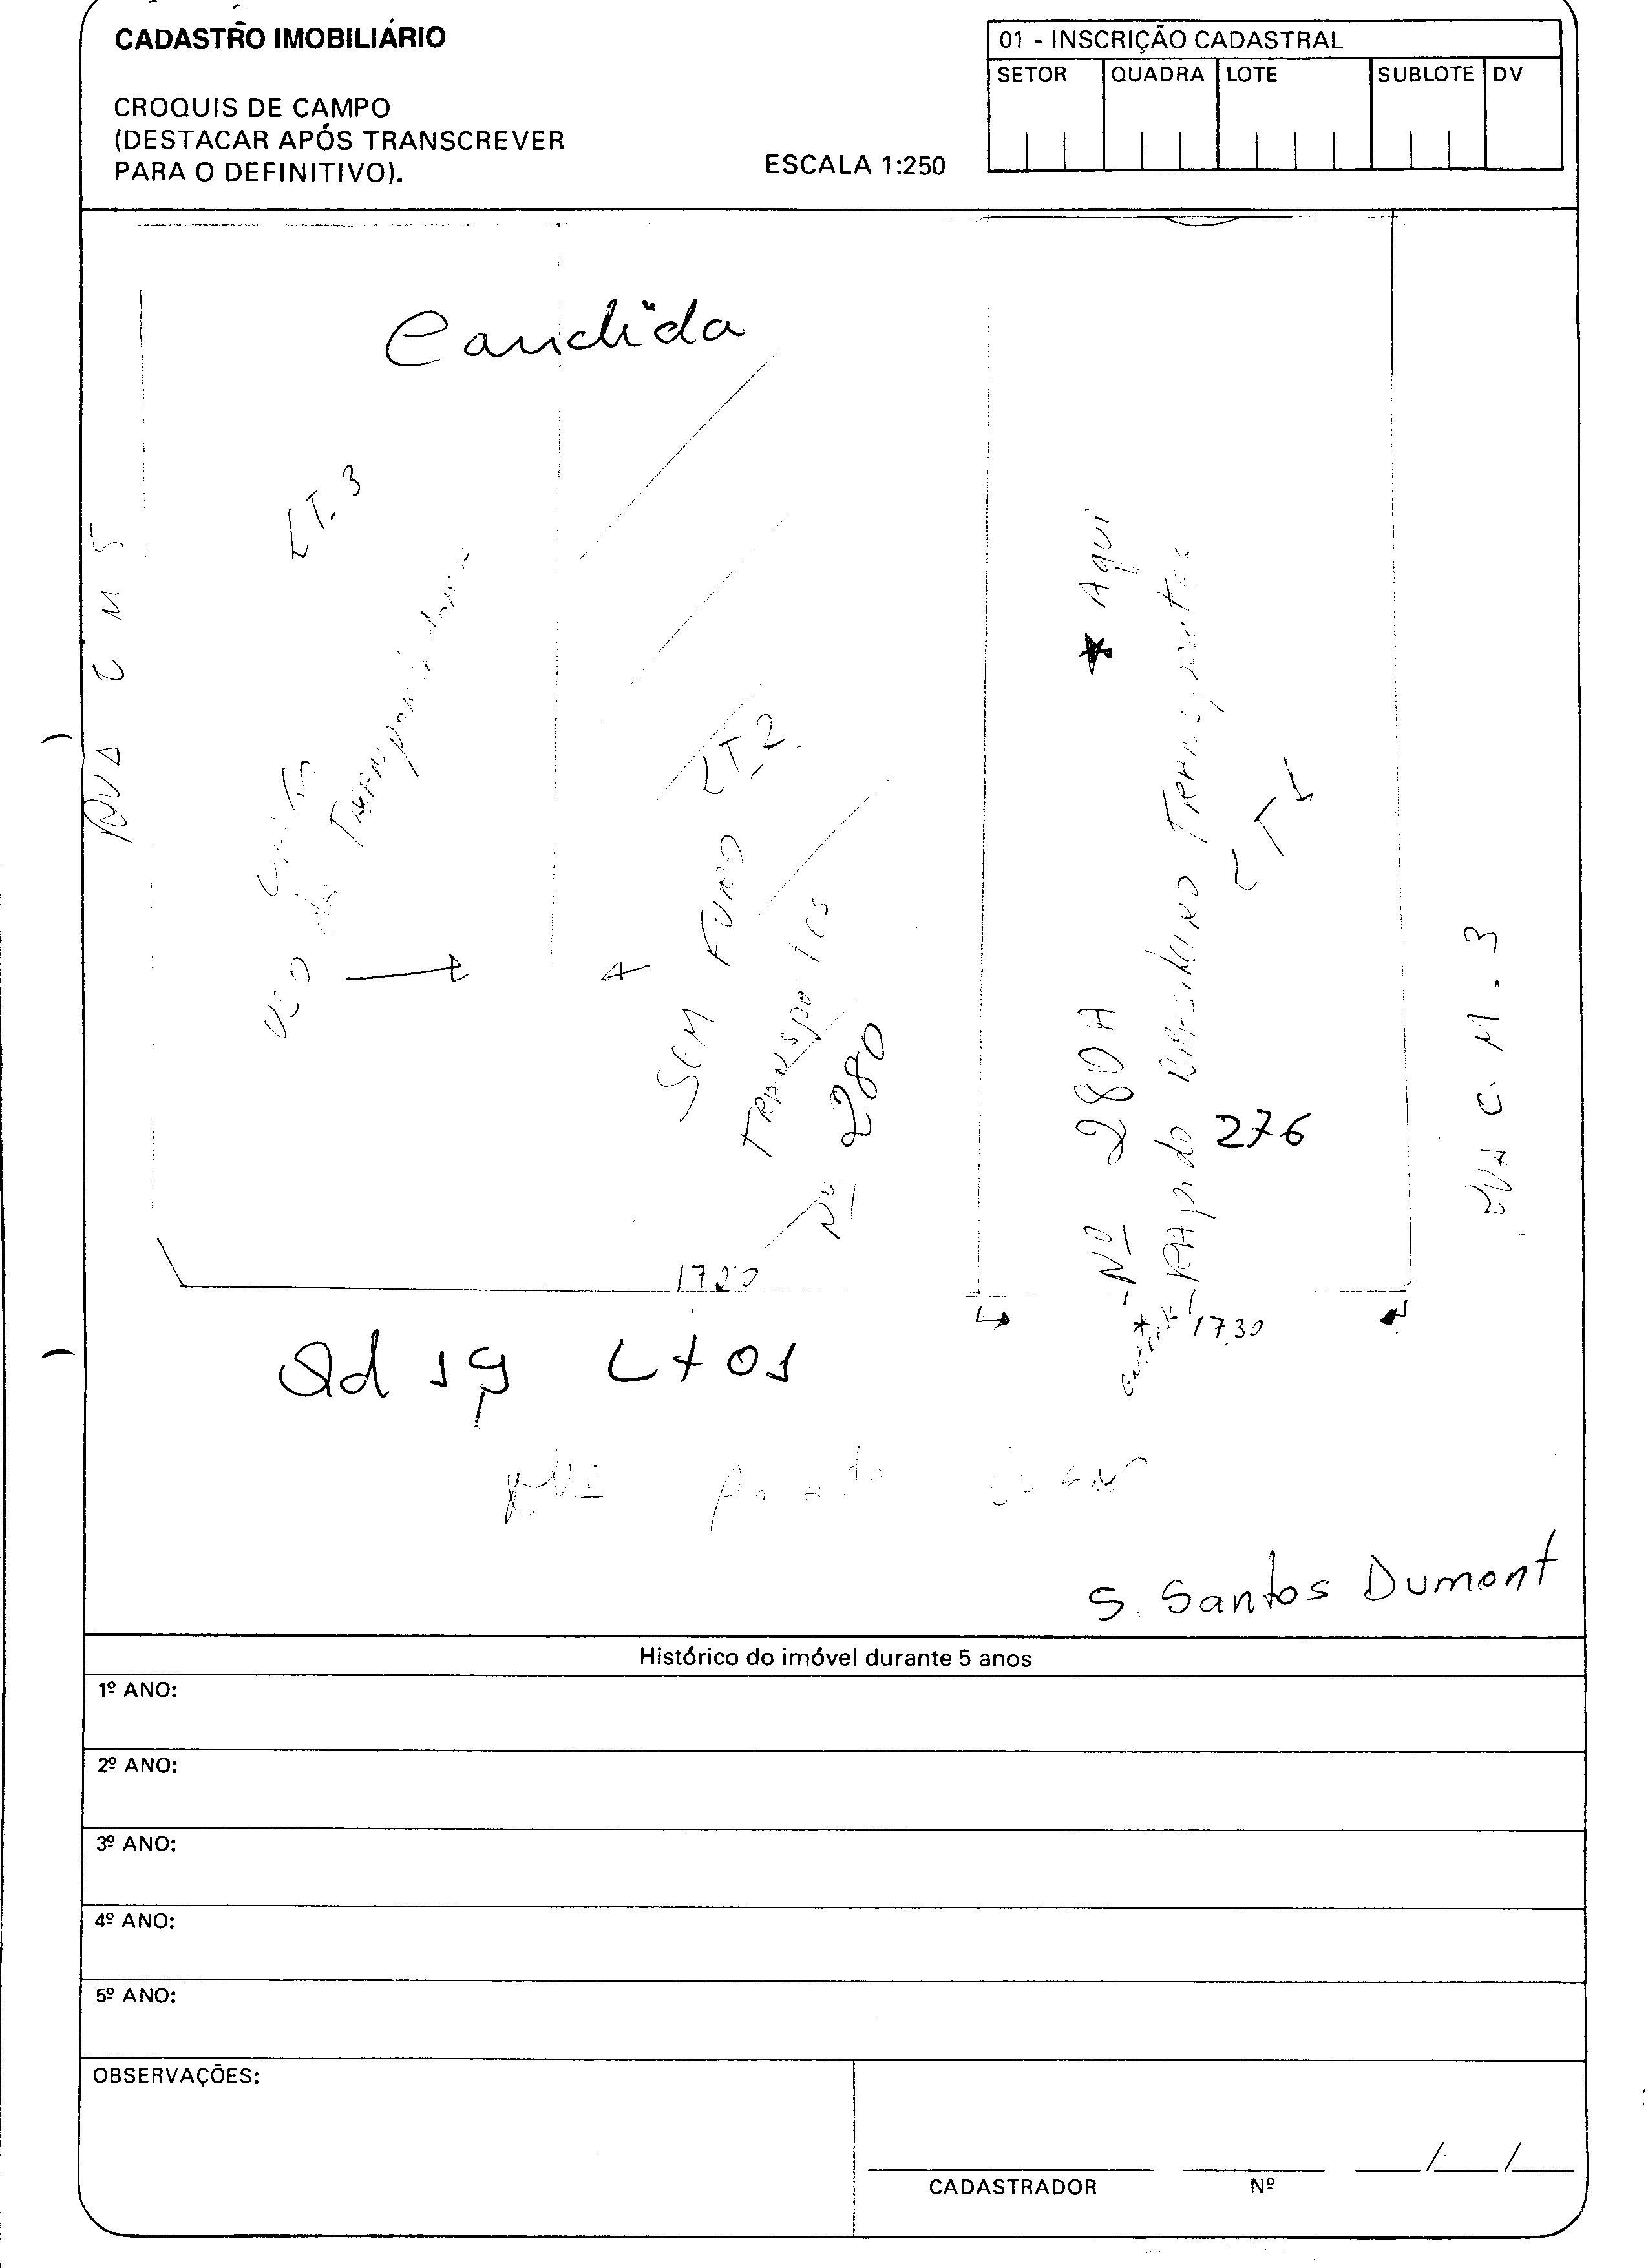 CADASTRO IMOBILIÁRIO
CROQUIS DE CAMPO
(DESTACAR APÓS TRANSCREVER
PARA O DEFINITIVO).
ESCALA 1:250
01 - INSCRIÇÃO CADASTRAL
SETOR QUADRA LOTE SUBLOTE DV
Candida
LT. 3
RUA C M 5
da
LT 2
SEM FUNO
TRANSportes
Nº 280
* Aqui
Nº 280A
RApido BRASileiNO TRANSportes
276
LT 1
RUA C. M. 3
1720
1730
Qd 19 Lt 01
RUA
S. Santos Dumont
Histórico do imóvel durante 5 anos
1º ANO:
2º ANO:
3º ANO:
4º ANO:
5º ANO:
OBSERVAÇÕES:
CADASTRADOR Nº